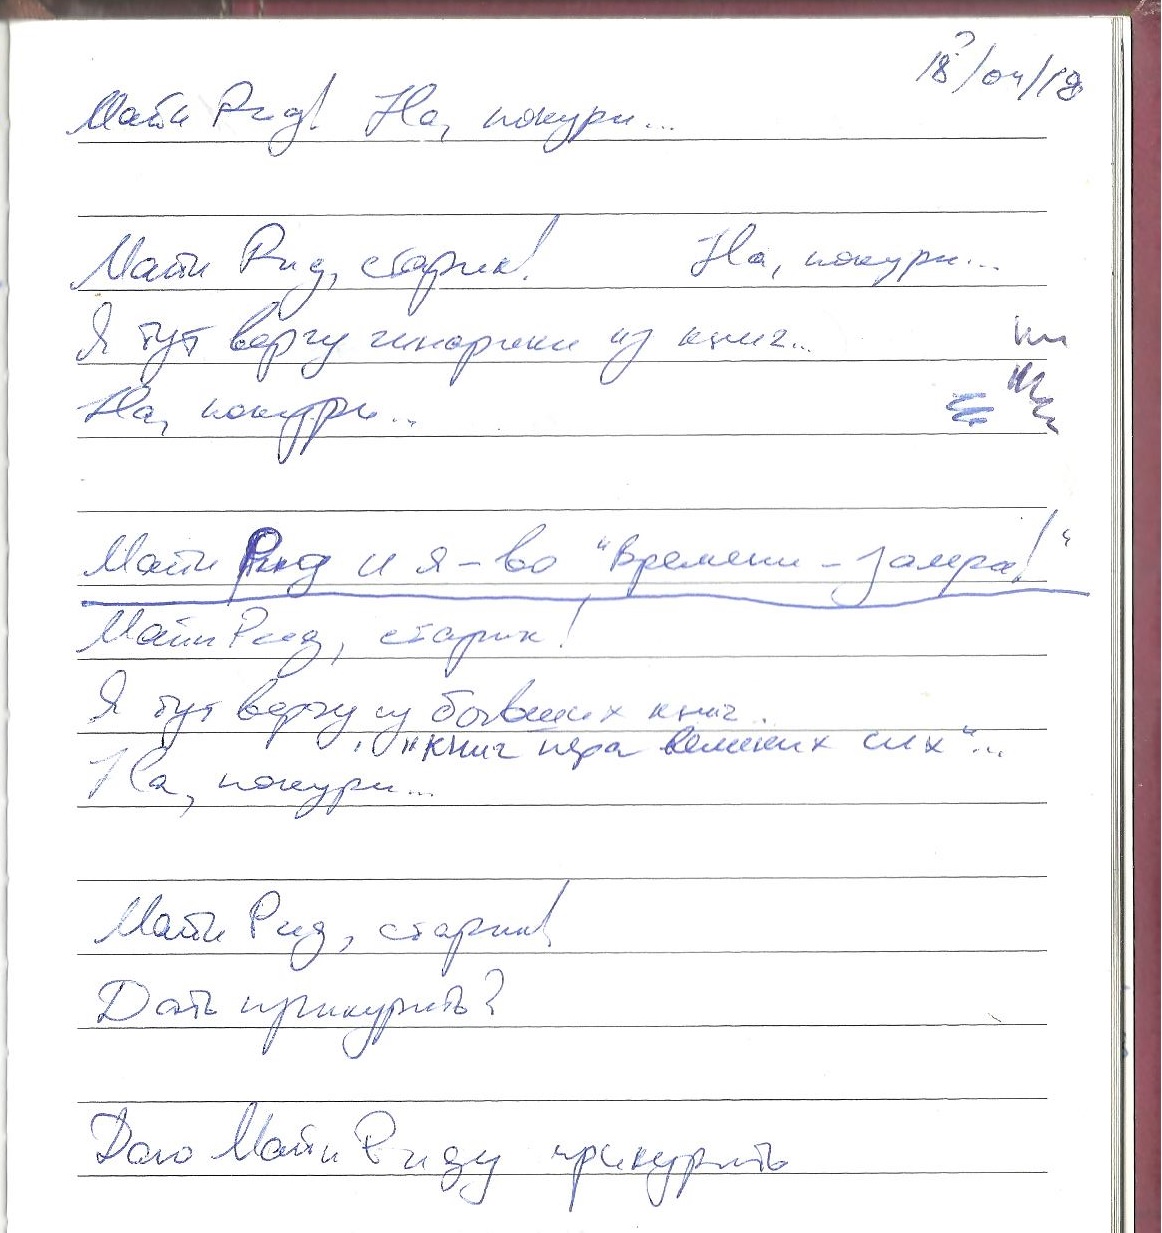 18?/04/18
Майн Рид! На, покури...
Майн Рид, старик! На, покури...
Я тут верчу чинарики из книг...
На, покури...
Майн Рид и я – во "Времени –
Майн Рид, старик!
Я тут верчу из бывших книг...
"книг пера великих сих"...
На, покури...
Майн Рид, старик!
Дать прикурить?
Даю Майн Риду прикурить